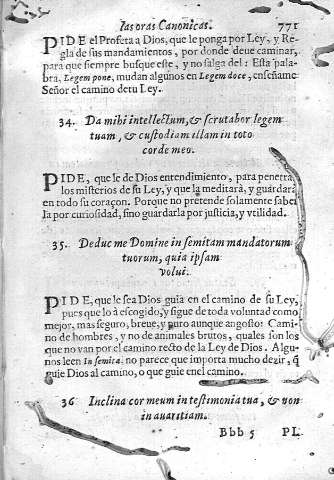 las oras Canonicas. 771
PIDE el Profeta a Dios, que le ponga por Ley, y Re-
gla de sus mandamientos, por donde deue caminar,
para que siempre busque este, y no salga del: Esta pala-
bra, Legem pone, mudan algunos en Legem doce, enseñame
Señor el camino de tu Ley.
34. Da mihi intellectum, & scrutabor legem
tuam, & custodiam illam in toto
corde meo.
PIDE, que le de Dios entendimiento, para penetrar
los misterios de su Ley, y que la meditarà, y guardarà
en todo su coraçon. Porque no pretende solamente saber
la por curiosidad, sino guardarla por justicia, y vtilidad.
35. Deduc me Domine in semitam mandatorum
tuorum, quia ipsam
volui.
PIDE, que le sea Dios guia en el camino de su Ley,
pues que lo à escogido, y sigue de toda voluntad como
mejor, mas seguro, breue, y puro aunque angosto: Cami-
no de hombres, y no de animales brutos, quales son los
que no van por el camino recto de la Ley de Dios. Algu-
nos leen In semita: no parece que importa mucho dezir, q̃
guie Dios al camino, o que guie en el camino.
36 Inclina cor meum in testimonia tua, & non
in auaritiam.
Bbb 5 PI-